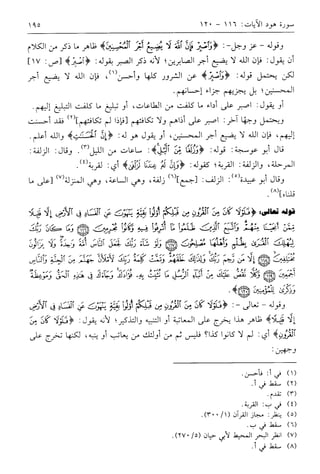 سورة هود الآيات: ١١٦ - ١٢٠ ١٩٥
وقوله - عز وجل-: ﴿وَاصْبِرْ فَإِنَّ اللَّهَ لَا يُضِيعُ أَجْرَ الْمُحْسِنِينَ﴾ ظاهر ما ذكر من الكلام
أن يقول: فإن الله لا يضيع أجر الصابرين؛ لأنه ذكر الصبر بقوله: ﴿وَاصْبِرْ﴾ [ص: ١٧]
لكن يحتمل قوله: ﴿وَاصْبِرْ﴾ عن الشرور كلها وأحسن(١)، فإن الله لا يضيع أجر
المحسنين؛ بل يجزيهم جزاء إحسانهم.
أو يقول: اصبر على أداء ما كلفت من الطاعات، أو تبليغ ما كلفت التبليغ إليهم.
ويحتمل وجهًا آخر: اصبر على أذاهم ولا تكافهم [فإذا لم تكافهم](٢) فقد أحسنت
إليهم، فإن الله لا يضيع أجر المحسنين، أو يقول هو له: ﴿مِنَ الْمُحْسِنِينَ﴾ والله أعلم.
قال أبو عوسجة: قوله: ﴿وَزُلَفًا مِّنَ الَّيْلِ﴾: ساعات من الليل(٣). وقال: الزلفة:
المرحلة، والزلفة: القربة؛ كقوله: ﴿وَإِنَّ لَهُ عِندَنَا لَزُلْفَىٰ﴾ أي: لقربة(٤).
وقال أبو عبيدة(٥): الزلف: [جمع](٦) زلفة، وهي الساعة، وهي المنزلة(٧) [على ما
قلناه](٨).
قوله تعالى: ﴿فَلَوْلَا كَانَ مِنَ الْقُرُونِ مِن قَبْلِكُمْ أُولُوا بَقِيَّةٍ يَنْهَوْنَ عَنِ الْفَسَادِ فِي الْأَرْضِ إِلَّا قَلِيلًا
مِّمَّنْ أَنجَيْنَا مِنْهُمْ وَاتَّبَعَ الَّذِينَ ظَلَمُوا مَا أُتْرِفُوا فِيهِ وَكَانُوا مُجْرِمِينَ وَمَا كَانَ رَبُّكَ
لِيُهْلِكَ الْقُرَىٰ بِظُلْمٍ وَأَهْلُهَا مُصْلِحُونَ وَلَوْ شَاءَ رَبُّكَ لَجَعَلَ النَّاسَ أُمَّةً وَاحِدَةً وَلَا يَزَالُونَ
مُخْتَلِفِينَ إِلَّا مَن رَّحِمَ رَبُّكَ وَلِذَٰلِكَ خَلَقَهُمْ وَتَمَّتْ كَلِمَةُ رَبِّكَ لَأَمْلَأَنَّ جَهَنَّمَ مِنَ الْجِنَّةِ وَالنَّاسِ
أَجْمَعِينَ وَكُلًّا نَّقُصُّ عَلَيْكَ مِنْ أَنبَاءِ الرُّسُلِ مَا نُثَبِّتُ بِهِ فُؤَادَكَ وَجَاءَكَ فِي هَٰذِهِ الْحَقُّ وَمَوْعِظَةٌ
وَذِكْرَىٰ لِلْمُؤْمِنِينَ﴾.
وقوله - تعالى -: ﴿فَلَوْلَا كَانَ مِنَ الْقُرُونِ مِن قَبْلِكُمْ أُولُوا بَقِيَّةٍ يَنْهَوْنَ عَنِ الْفَسَادِ فِي الْأَرْضِ
إِلَّا قَلِيلًا﴾ ظاهر هذا يخرج على المعاتبة أو التنبيه والتذكير؛ لأنه يقول: ﴿فَلَوْلَا كَانَ مِنَ
الْقُرُونِ﴾ أي: لم لا كانوا كذا؟ فليس ثم من أولئك من يعاتب أو ينبه، لكنها تخرج على
وجهين:
(١) في أ: فأحسن.
(٢) سقط في أ.
(٣) تقدم.
(٤) في ب: القربة.
(٥) ينظر: مجاز القرآن (١/ ٣٠٠).
(٦) سقط في ب.
(٧) انظر البحر المحيط لأبي حيان (٥/ ٢٧٠).
(٨) سقط في أ.